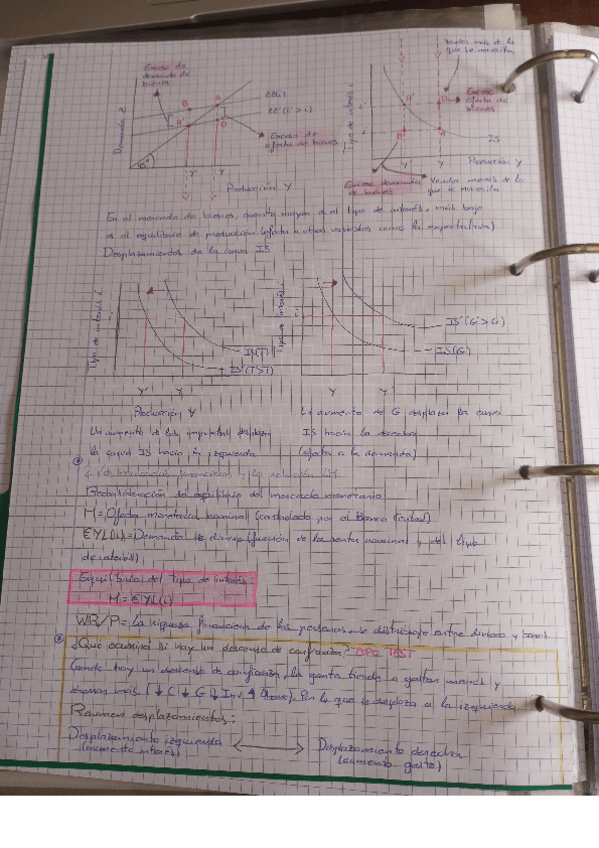 Exceso de
demanda de
bienes
Demanda Z
45°
B
A
B'
D
ZZ'(i'>i)
Exceso de
oferta de bienes
Y'
Y
Producción Y
que se necesita
Tipo de interés i
A'
D
B'
A
Exceso
oferta de
bienes
IS
Y'
Y
Producción Y
Exceso demanda
de bienes
Vender menos de lo
que se necesita
En el mercado de bienes, cuanto mayor es el tipo de interés, más bajo
es el equilibrio de producción (afecta a otras variables como la
Desplazamientos de la curva IS
Tipo de interés i
IS(T)
IS'(T'>T)
Y'
Y
Producción Y
Tipo de interés i
IS'(G'>G)
IS(G)
Y
Y'
Un aumento de los impuestos desplaza
la curva IS hacia la izquierda
Un aumento de G desplaza la curva
IS hacia la derecha
(afecta a la demanda)
Los mercados financieros y la relación LM
Reconsideración de equilibrio del mercado monetario
M = Oferta monetaria nominal (controlado por el Banco Central)
€YL(i) = Demanda de dinero (función de la renta nominal y del tipo
de interés)
Equilibrio del tipo de interés:
M = €YL(i)
WR/P = La riqueza financiera de las personas, se distribuye entre dinero y bonos
¿Qué ocurrirá si hay un descenso de confianza?
TEST
Cuando hay un descenso de confianza, la gente tiende a gastar menos y
ahorrar más. (↓ C ↓ G ↓ Inv ↑ Ahorro). Por lo que se desplaza a la izquierda
Resumen desplazamientos:
Desplazamiento izquierda
(aumento interés)
Desplazamiento derecha
(aumento gasto)